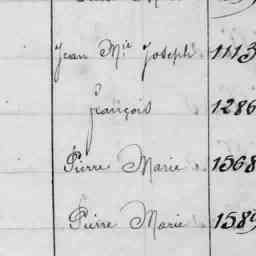 Jean Mie Joseph 1113
François 1286
Pierre Marie 1568
Pierre Marie 1589